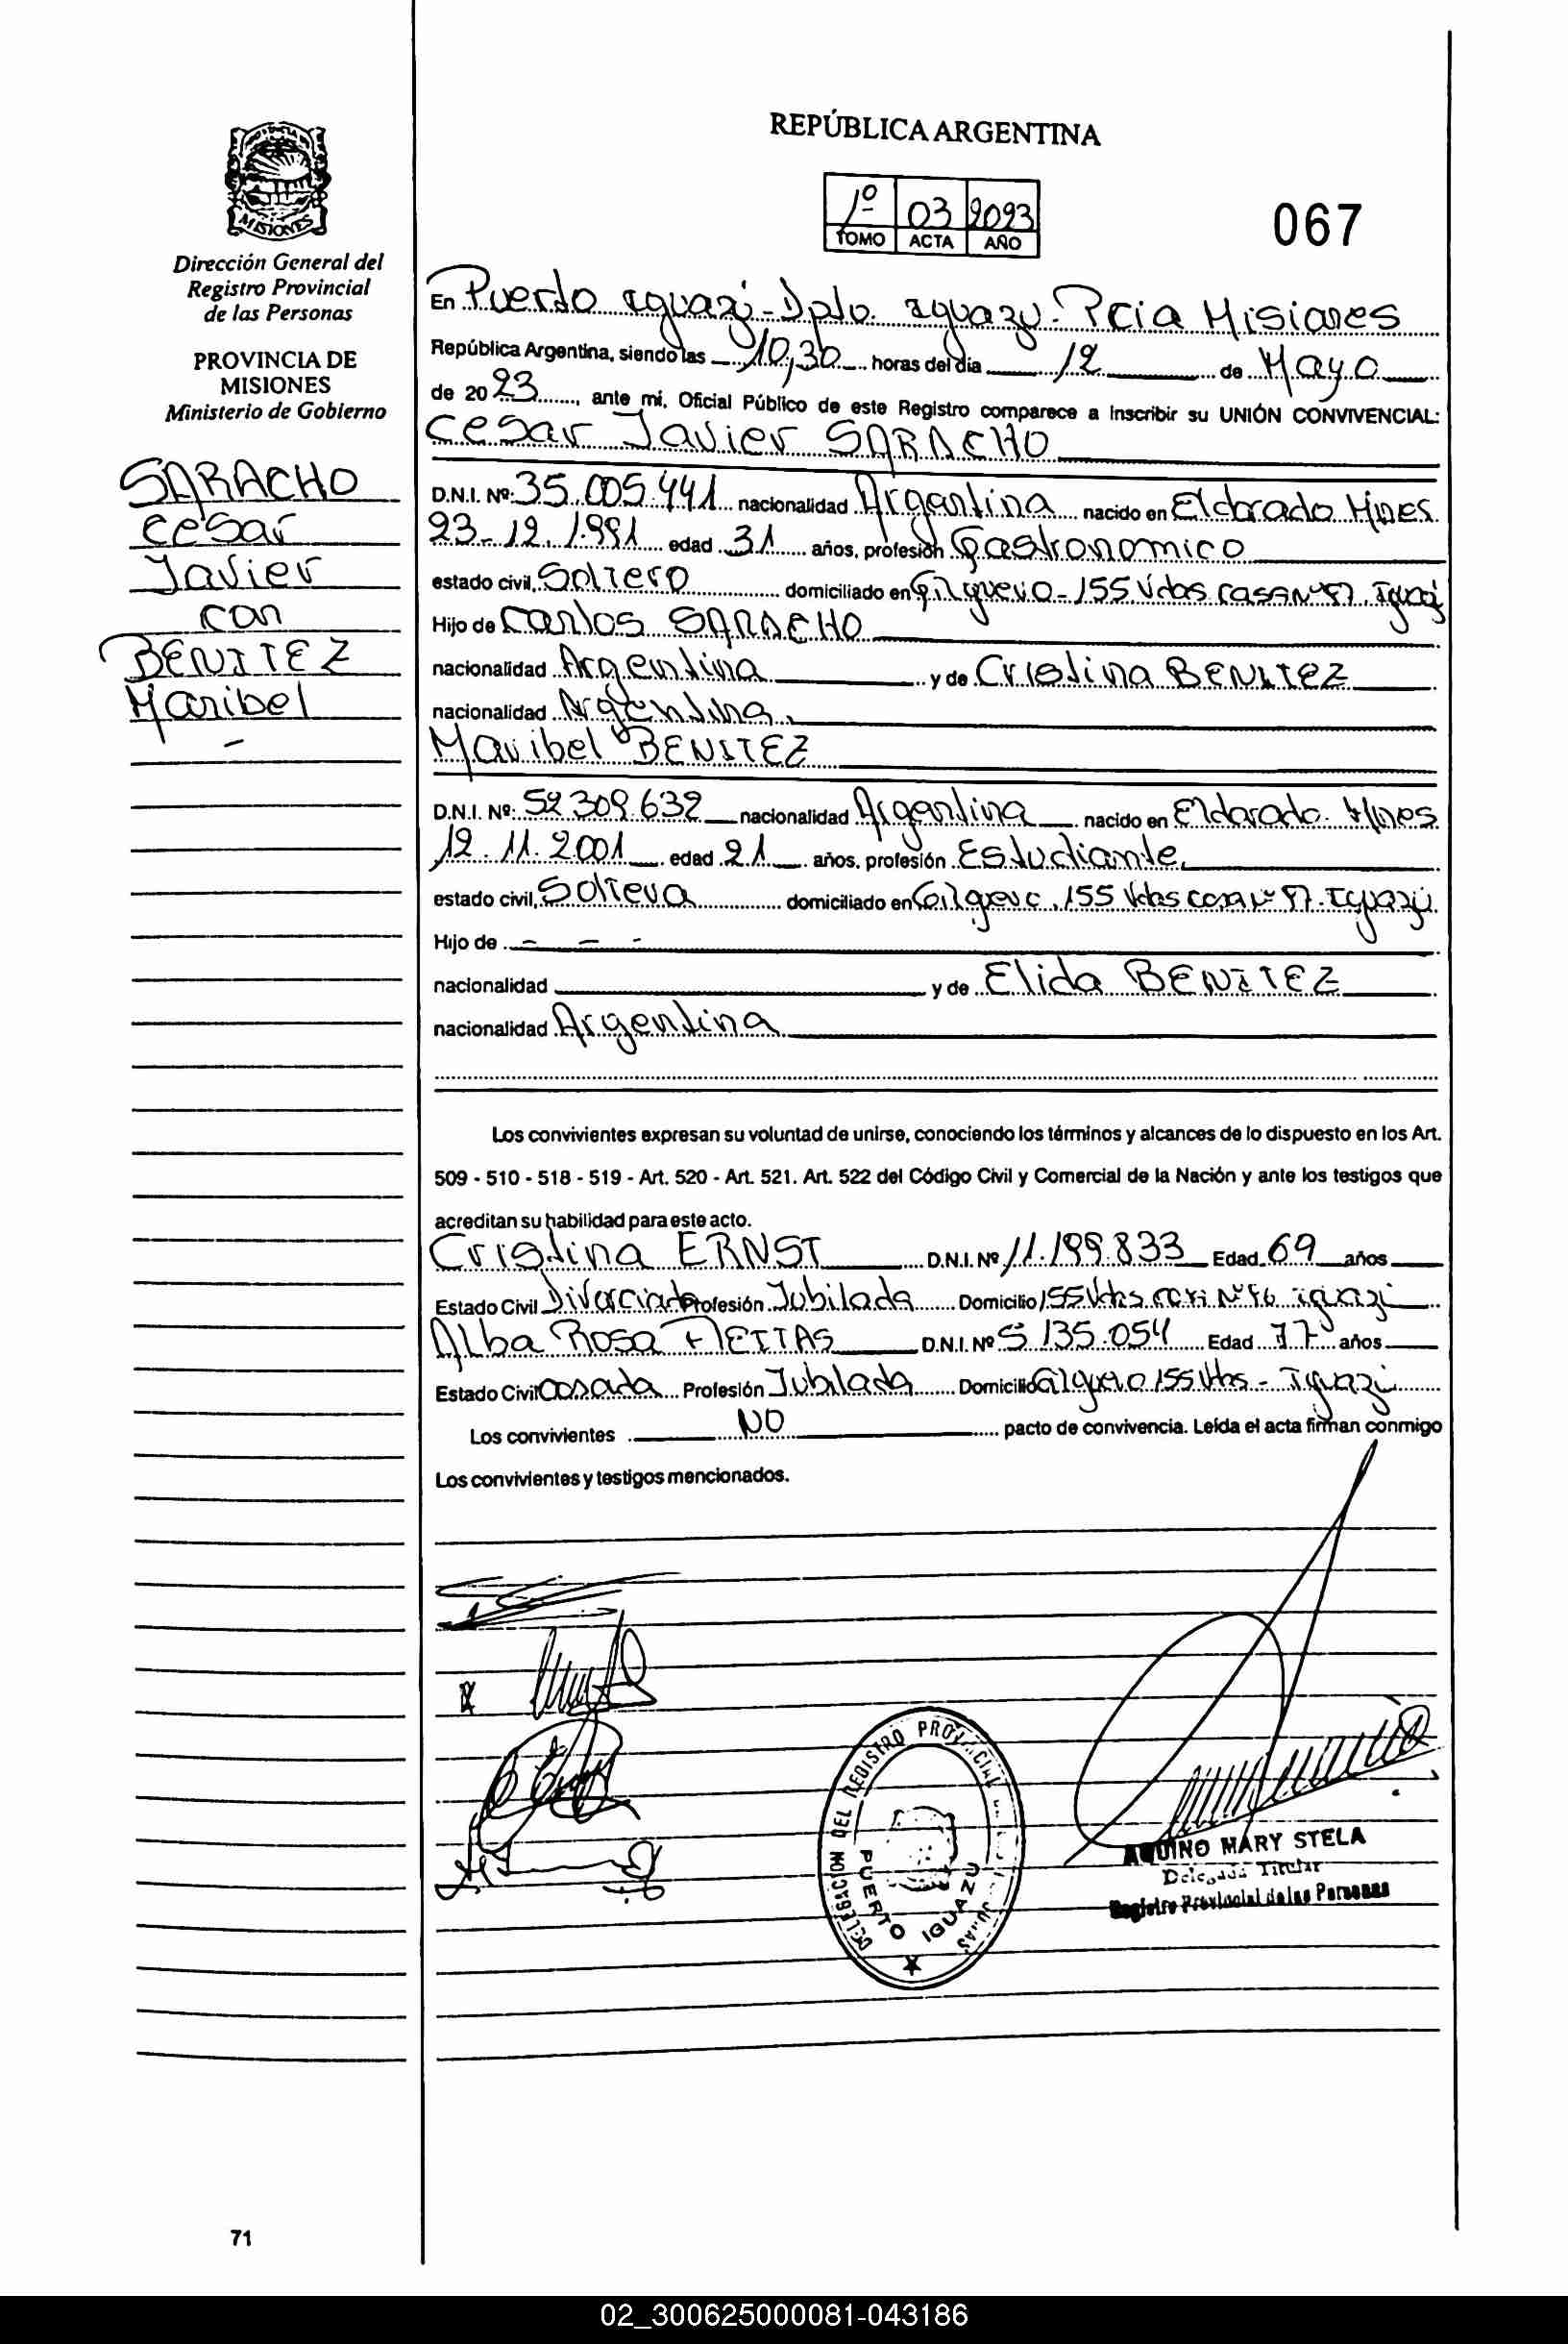 MISIONES
Dirección General del
Registro Provincial
de las Personas
PROVINCIA DE
MISIONES
Ministerio de Gobierno
SARACHO
Cesar
Javier
con
BENITEZ
Maribel
-
71
REPÚBLICA ARGENTINA
1º 03 2023
TOMO ACTA AÑO
067
En Puerto Iguazú - Dpto. Iguazú. Pcia Misiones
República Argentina, siendo las 10,30 horas del día 12 de Mayo
de 2023, ante mí, Oficial Público de este Registro comparece a Inscribir su UNIÓN CONVIVENCIAL:
Cesar Javier SARACHO
D.N.I. Nº: 35.005.441 nacionalidad Argentina nacido en Eldorado Mnes
23-12.1991 edad 31 años, profesión Gastronomico
estado civil, Soltero domiciliado en Gilguero - 155 Vdas casa Nº 57. Iguazú
Hijo de Carlos SARACHO
nacionalidad Argentina y de Cristina BENITEZ
nacionalidad Argentina.
Maribel BENITEZ
D.N.I. Nº: 52309.632 nacionalidad Argentina nacido en Eldorado. Mnes
12.11.2001 edad 21 años, profesión Estudiante.
estado civil, Soltera domiciliado en 155 Vdas casa Nº 57. Iguazú
Hijo de - - -
nacionalidad y de Elida BENITEZ
nacionalidad Argentina
Los convivientes expresan su voluntad de unirse, conociendo los términos y alcances de lo dispuesto en los Art.
509 - 510 - 518 - 519 - Art. 520 - Art. 521. Art. 522 del Código Civil y Comercial de la Nación y ante los testigos que
acreditan su habilidad para este acto.
Cristina ERNST D.N.I. Nº 11.199.833 Edad 69 años
Estado Civil Divorciada Profesión Jubilada Domicilio 155 Vdas casa Nº 56 Iguazú
Alba Rosa D.N.I. Nº 5.135.054 Edad 77 años
Estado Civil Casada Profesión Jubilada Domicilio Gilguero 155 Vdas - Iguazú
Los convivientes NO pacto de convivencia. Leída el acta firman conmigo
Los convivientes y testigos mencionados.
DELEGACION DEL REGISTRO PROVINCIAL
PUERTO IGUAZU
AQUINO MARY STELA
Delegada Titular
Registro Provincial de las Personas
02_300625000081-043186